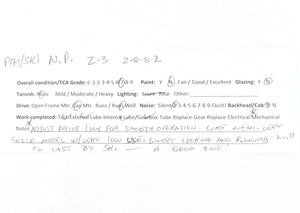 PFM/SKI N.P. Z-3 2-8-8-2
Overall condition/TCA Grade: C-1-2-3-4-5-6-7-8-9 Paint: Y N Fair / Good / Excellent Glazing: Y N
Tarnish: None / Mild / Moderate / Heavy Lighting: Front Rear Other:
Drive: Open Frame Mtr Can Mtr Runs / Runs Well Noise: Silent 2-3-4-5-6-7-8-9 Ouch! Backhead/Cab: Y N
Work completed: Test-External Lube-Internal Lube/Gearbox-Tube Replace-Gear Replace-Electrical Mechanical
Notes: ADJUST DRIVE LINE FOR SMOOTH OPERATION. LIKE NEW - VERY
SOLID MODEL W/VERY LOW USE. SWEET LOOKING AND RUNNING - BUILT
TO LAST BY SKI — A GOOD ONE!